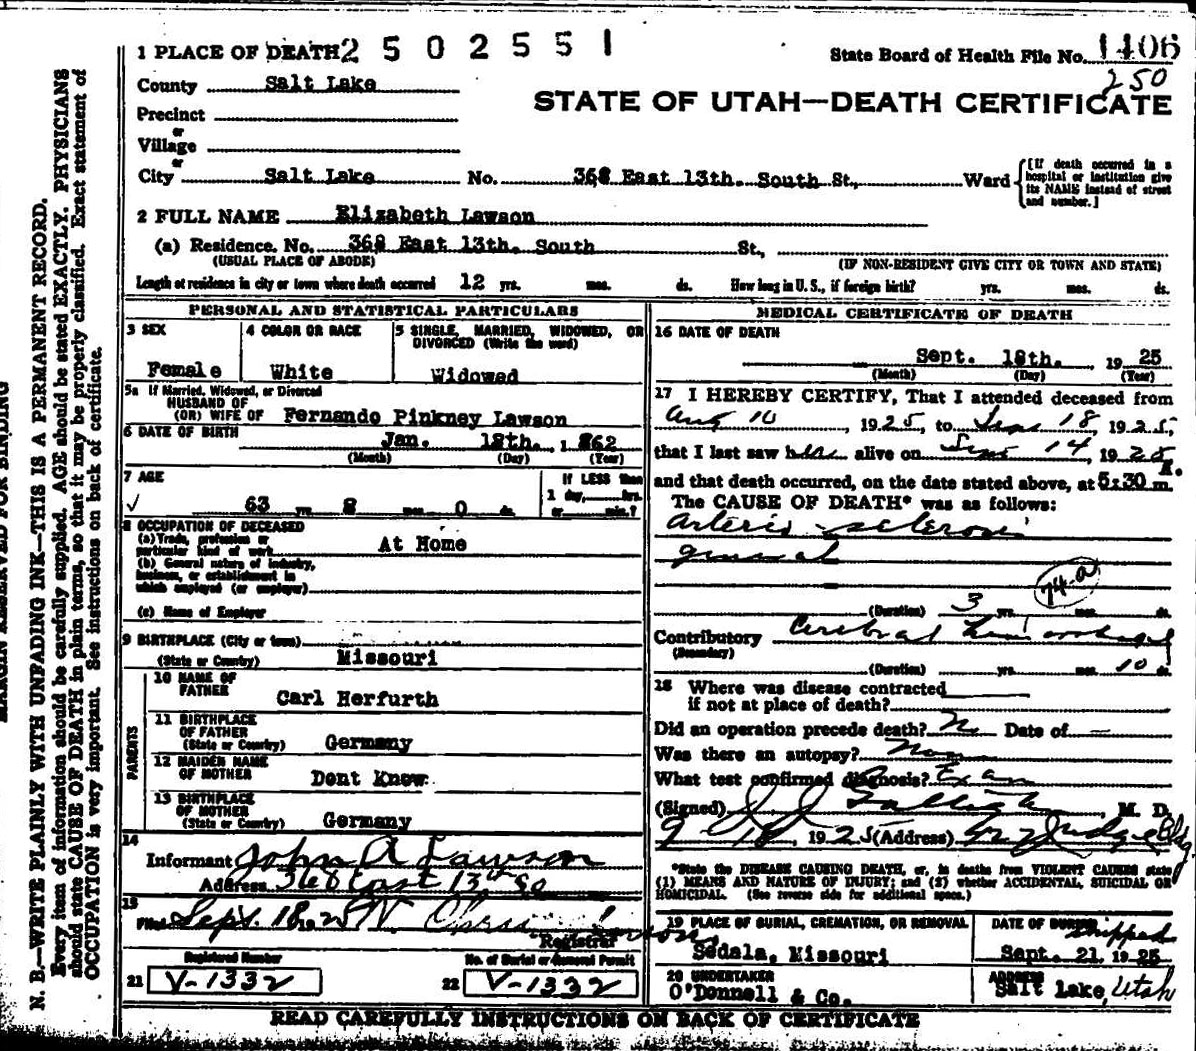 1 PLACE OF DEATH 2 5 0 2 5 5 1
State Board of Health File No. 1406
250
County Salt Lake
STATE OF UTAH—DEATH CERTIFICATE
Precinct
or
Village
or
City Salt Lake No. 368 East 13th. South St., Ward
[If death occurred in a
hospital or institution give
its NAME instead of street
and number.]
2 FULL NAME Elizabeth Lawson
(a) Residence. No. 368 East 13th. South St.,
(USUAL PLACE OF ABODE) (IF NON-RESIDENT GIVE CITY OR TOWN AND STATE)
Length of residence in city or town where death occurred 12 yrs. mos. ds. How long in U. S., if foreign birth? yrs. mos. ds.
PERSONAL AND STATISTICAL PARTICULARS
3 SEX
Female
4 COLOR OR RACE
White
5 SINGLE, MARRIED, WIDOWED, OR
DIVORCED (Write the word)
Widowed
5a If Married, Widowed, or Divorced
HUSBAND OF
(OR) WIFE OF Fernando Pinkney Lawson
6 DATE OF BIRTH Jan. 18th. 1862
(Month) (Day) (Year)
7 AGE
63 yrs. 8 mos. 0 ds.
If LESS than
1 day, hrs.
or min.?
8 OCCUPATION OF DECEASED
(a) Trade, profession or
particular kind of work At Home
(b) General nature of industry,
business, or establishment in
which employed (or employer)
(c) Name of Employer
9 BIRTHPLACE (City or town)
(State or Country) Missouri
PARENTS
10 NAME OF
FATHER
Carl Herfurth
11 BIRTHPLACE
OF FATHER
(State or Country) Germany
12 MAIDEN NAME
OF MOTHER Dont Know
13 BIRTHPLACE
OF MOTHER
(State or Country) Germany
14
Informant John A Lawson
Address 368 East 13th So
15
Filed Sept. 18, 1925
Registrar
Registered Number
21 V-1332
No. of Burial or Removal Permit
22 V-1332
MEDICAL CERTIFICATE OF DEATH
16 DATE OF DEATH
Sept. 18th. 1925
(Month) (Day) (Year)
17 I HEREBY CERTIFY, That I attended deceased from
Aug 10, 1925, to Sept 18, 1925,
that I last saw her alive on Sept 14, 1925
and that death occurred, on the date stated above, at 5:30 P. m.
The CAUSE OF DEATH* was as follows:
Arterio-sclerosis
general
74-a
(Duration) 3 yrs. mos. ds.
Contributory Cerebral hemorrhage
(Secondary)
(Duration) yrs. mos. 10 ds.
18 Where was disease contracted
if not at place of death?
Did an operation precede death? No Date of —
Was there an autopsy?
What test confirmed diagnosis? Exam
(Signed) M. D.
9-18, 1925 (Address) Judge Bldg
*State the DISEASE CAUSING DEATH, or, in deaths from VIOLENT CAUSES state
(1) MEANS AND NATURE OF INJURY; and (2) whether ACCIDENTAL, SUICIDAL OR
HOMICIDAL. (See reverse side for additional space.)
19 PLACE OF BURIAL, CREMATION, OR REMOVAL
Sedala, Missouri
DATE OF BURIAL
Shipped
Sept. 21, 1925
20 UNDERTAKER
O'Donnell & Co.
ADDRESS
Salt Lake, Utah
READ CAREFULLY INSTRUCTIONS ON BACK OF CERTIFICATE
MARGIN RESERVED FOR BINDING
N. B.—WRITE PLAINLY WITH UNFADING INK—THIS IS A PERMANENT RECORD.
Every item of information should be carefully supplied. AGE should be stated EXACTLY. PHYSICIANS
should state CAUSE OF DEATH in plain terms, so that it may be properly classified. Exact statement of
OCCUPATION is very important. See instructions on back of certificate.